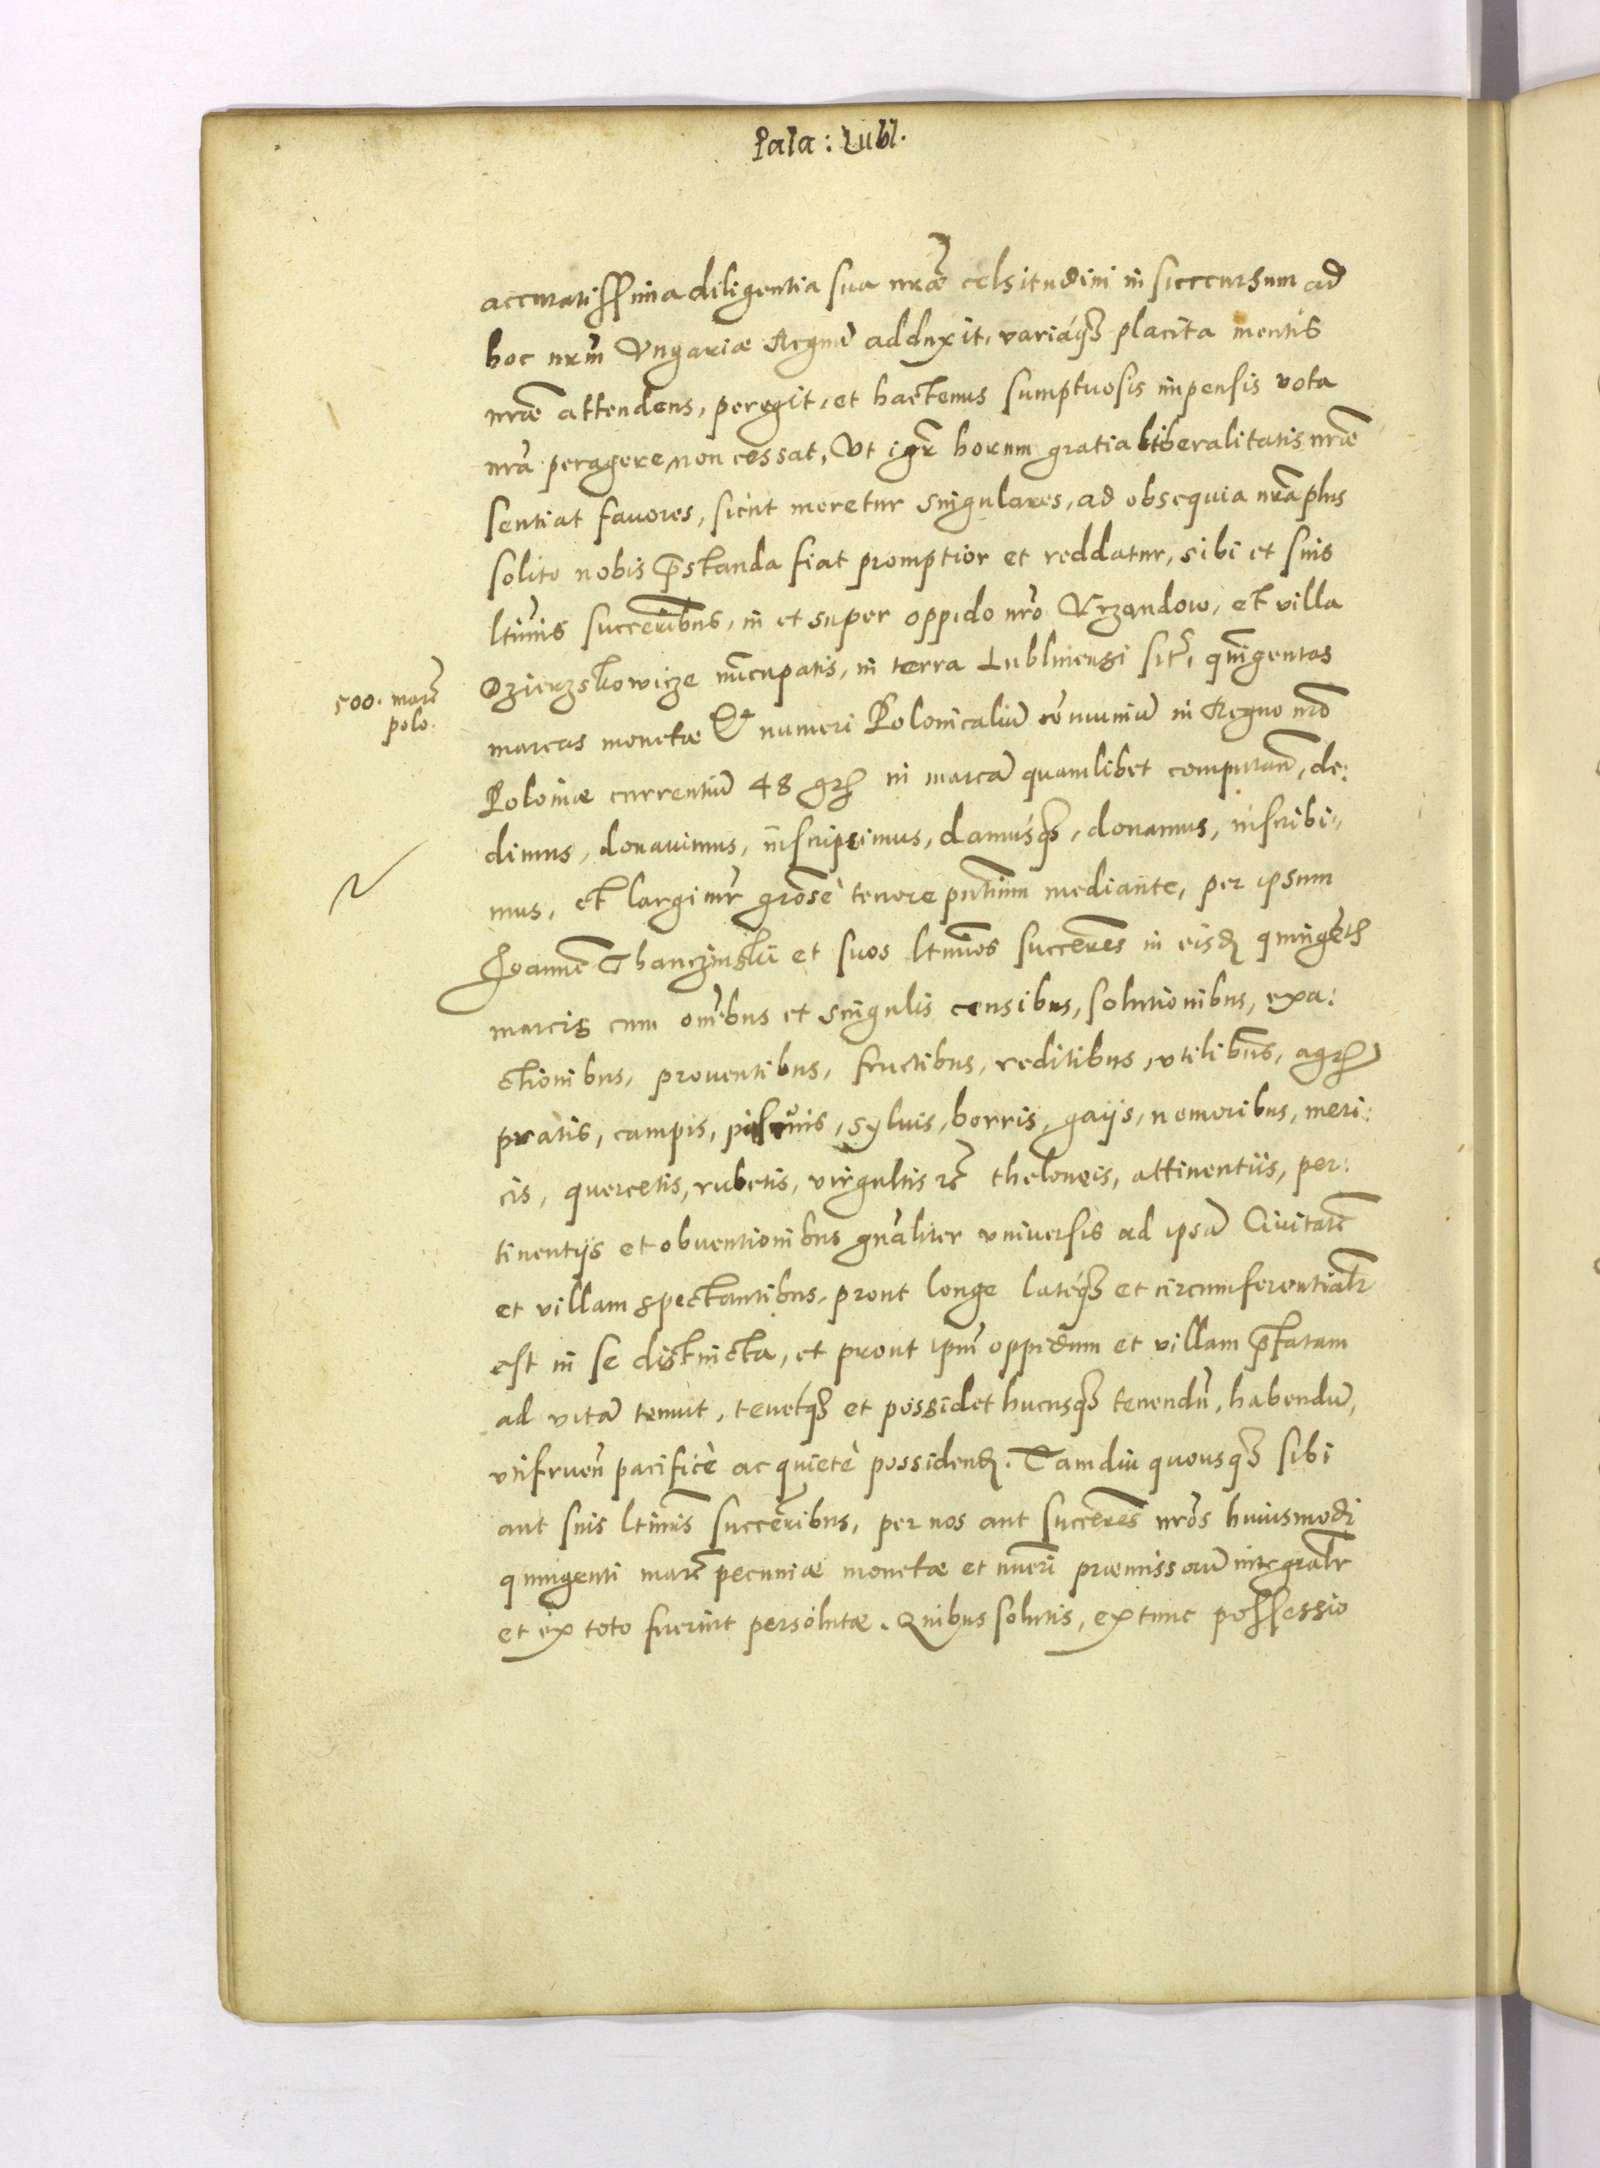 Pala: Lubl.
accuratissima diligentia sua nrae celsitudini in succursum ad
hoc nrm Vngariae Regnu adduxit, variasq placita mentis
nrae attendens, peregit, et hactenus sumptuosis impensis vota
nra peragere non cessat, Vt igr horum gratia liberalitatis nrae
sentiat favores, sicut meretur singulares, ad obsequia nra plus
solito nobis pstanda fiat promptior et reddatur, sibi et suis
ltimis succeribus, in et super oppido nro Vrzandow, et villa
Dzierzskowicze nucupatis, in terra Lublinensi sit, quingentas
500. marc
polo.
marcas monetae et numeri Polonicaliu comuniu in Regno nro
Poloniae currentiu 48 gr in marca quamlibet computan, de:
dimus, donavimus, inscripsimus, damusq, donamus, inscribi-
mus, et largimr grose tenore pntium mediante, per ipsum
Joanne Thanczinski et suos ltimos succeres in eisd quinget
marcis cum omibus et singulis censibus, solutionibus, exa:
ctionibus, proventibus, fructibus, reditibus, vtilibus, agr
pratis, campis, piscinis, sylvis, borris, gays, nemoribus, meri:
cis, quercetis, rubetis, virgultis rc theloneis, attinentiis, per:
tinentijs et obventionibus gnaliter vniversis ad ipsa Civitate
et villam spectantibus, prout longe lateq et circumferentialr
est in se distincta, et prout ipm oppidum et villam pfatam
ad vita tenuit, tenetq et possidet hucusq tenendu, habendu,
vtifruen pacifice ac quiete possidend. Tamdiu quousq sibi
aut suis ltimis succeribus, per nos aut succeres nros huiusmodi
quingenti marc pecuniae monetae et nueri praemissoru integralr
et ex toto fuerint persolutae. Quibus solutis, extunc possessio